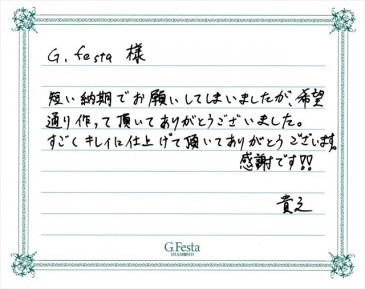 G. festa 様
短い納期でお願いしてしまいましたが、希望
通り作って頂いてありがとうございました。
すごくキレイに仕上げて頂いてありがとうございます。
感謝です!!
貴之
G.Festa
DIAMOND